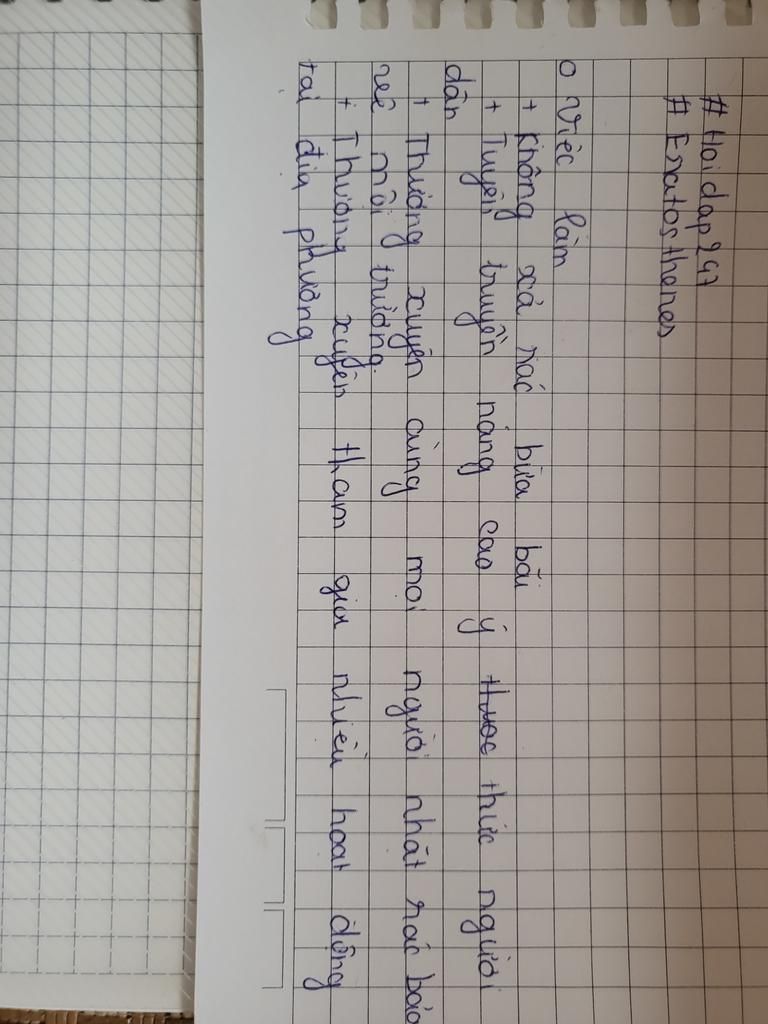 # Hoidap247
# Eratosthenes
o Việc làm
+ Không xả rác bừa bãi
+ Tuyên truyền nâng cao ý thưc thức người
dân
+ Thường xuyên cùng mọi người nhặt rác bảo
vệ môi trường.
+ Thường xuyên tham gia nhiều hoạt động
tại địa phương